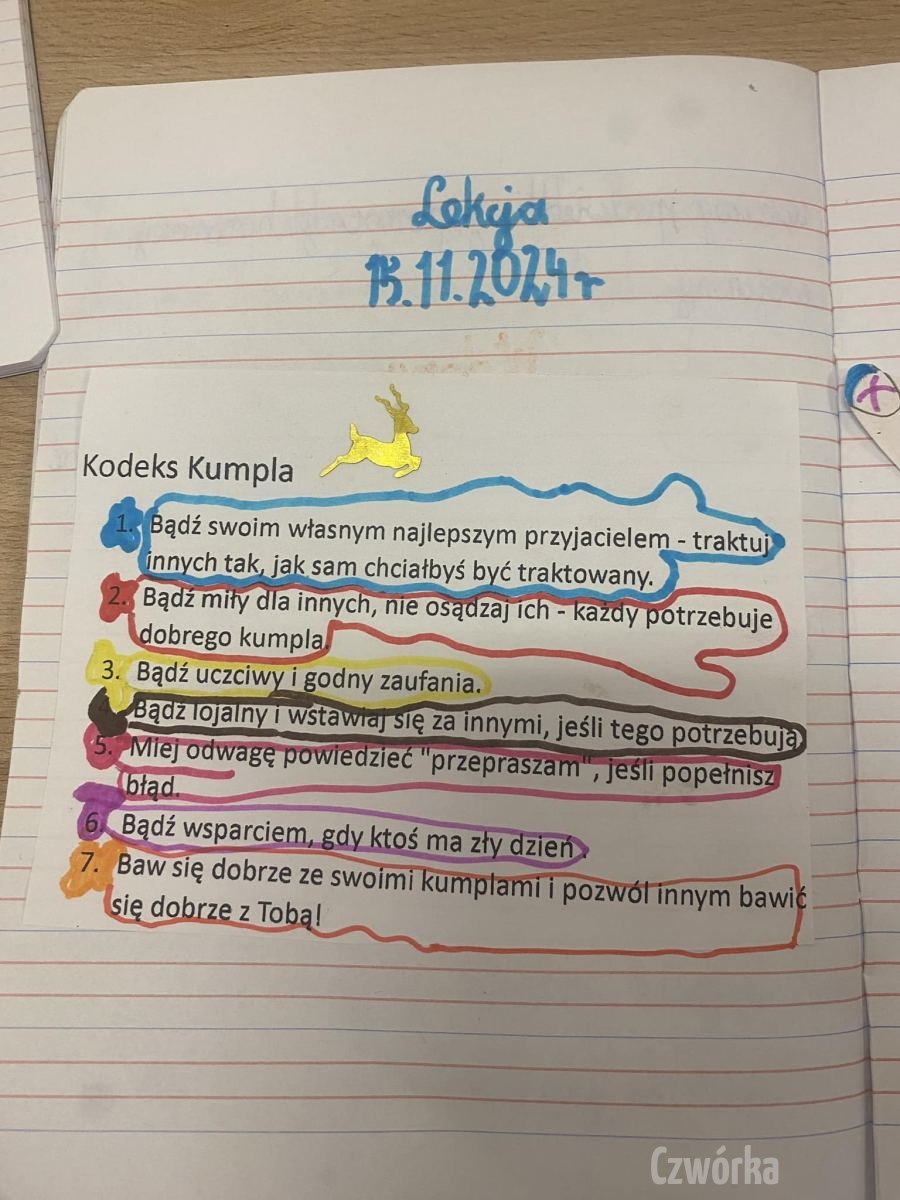 Lekcja
15.11.2024r
Kodeks Kumpla
1. Bądź swoim własnym najlepszym przyjacielem - traktuj
innych tak, jak sam chciałbyś być traktowany.
2. Bądź miły dla innych, nie osądzaj ich - każdy potrzebuje
dobrego kumpla.
3. Bądź uczciwy i godny zaufania.
Bądź lojalny i wstawiaj się za innymi, jeśli tego potrzebują
5. Miej odwagę powiedzieć "przepraszam", jeśli popełnisz
błąd.
6. Bądź wsparciem, gdy ktoś ma zły dzień.
7. Baw się dobrze ze swoimi kumplami i pozwól innym bawić
się dobrze z Tobą!
Czwórka